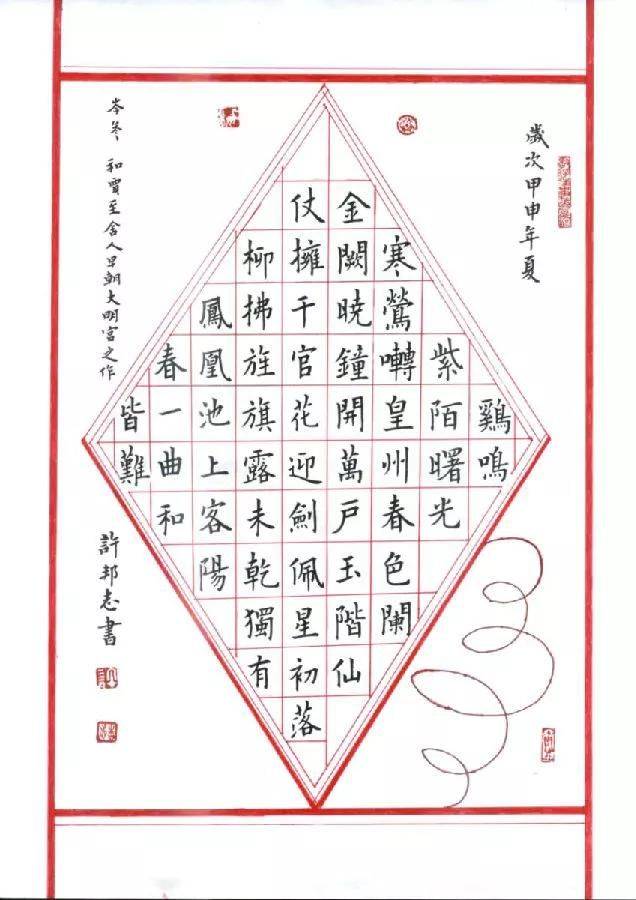 歲次甲申年夏
鷄鳴
紫陌曙光
寒鶯囀皇州春色闌
金闕暁鐘開萬戶玉階仙
仗擁千官花迎劍佩星初落
柳拂旌旗露未乾獨有
鳳凰池上客陽
春一曲和
皆難
岑参 和賈至舍人早朝大明宮之作
許邦志書